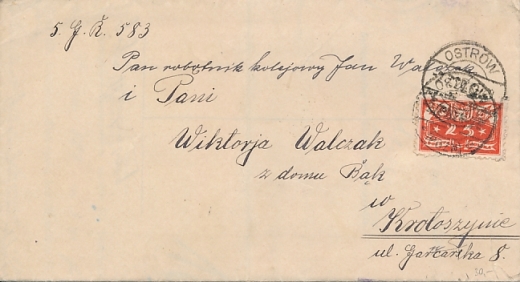 5. G. K. 583
Pan robotnik kolejowy Jan Walczak
i Pani
Wiktorja Walczak
z domu Bąk
w
Krotoszynie
ul. Garncarska 8.
OSTRÓW
25